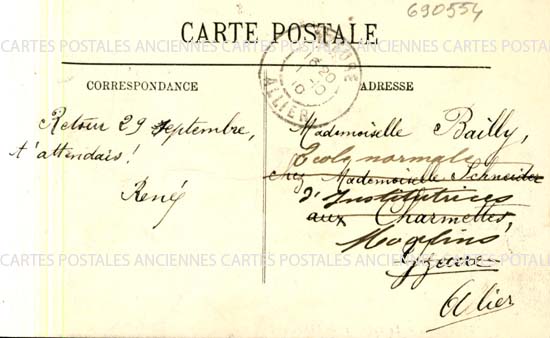 690554
CARTE POSTALE
CARTES POSTALES ANCIENNES CARTES POSTALES ANCIENNES CARTES POSTALES
YZEURE
16 20
1 10
10
ALLIER
CORRESPONDANCE
ADRESSE
Retour 29 septembre,
t'attendais!
René
Mademoiselle Bailly,
Ecole normale
chez Mademoiselle Schneider
d'Institutrices
aux Charmettes,
Moulins
Yzeure
Allier
CARTES POSTALES ANCIENNES CARTES POSTALES ANCIENNES CARTES POSTALES